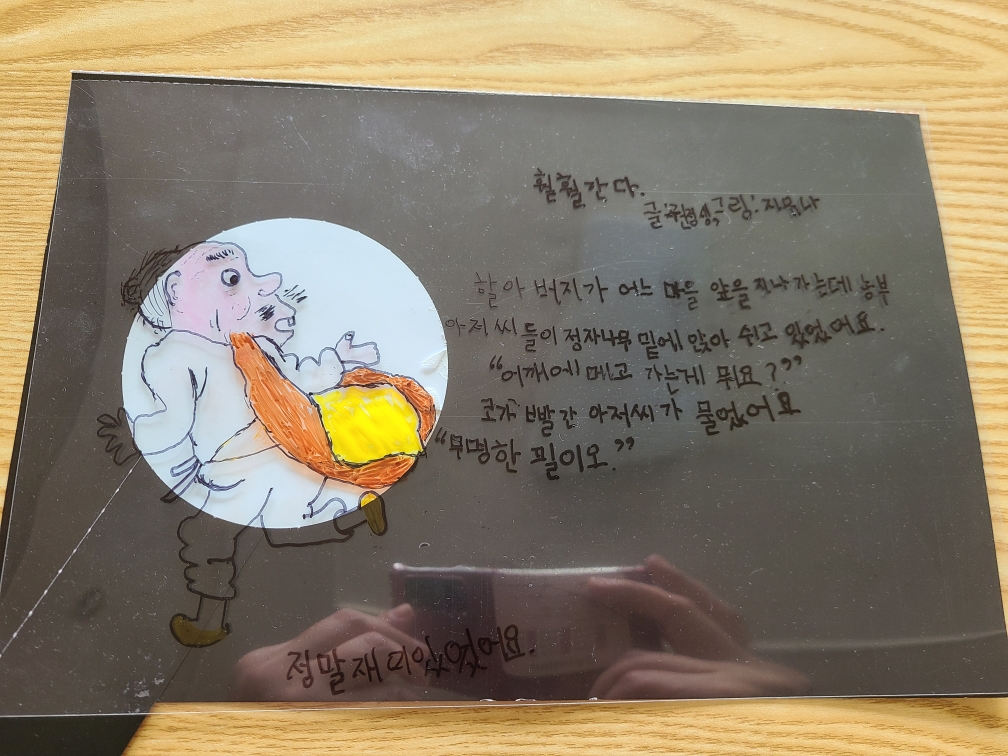 훨훨 간다.
글:권정생, 그림:
할아버지가 어느 마을 앞을 지나가는데 농부
아저씨들이 정자나무 밑에 앉아 쉬고 있었어요.
“어깨에 메고 가는게 뭐요?”
코가 빨간 아저씨가 물었어요
“무명한 필이오.”
정말 재미있었어요.